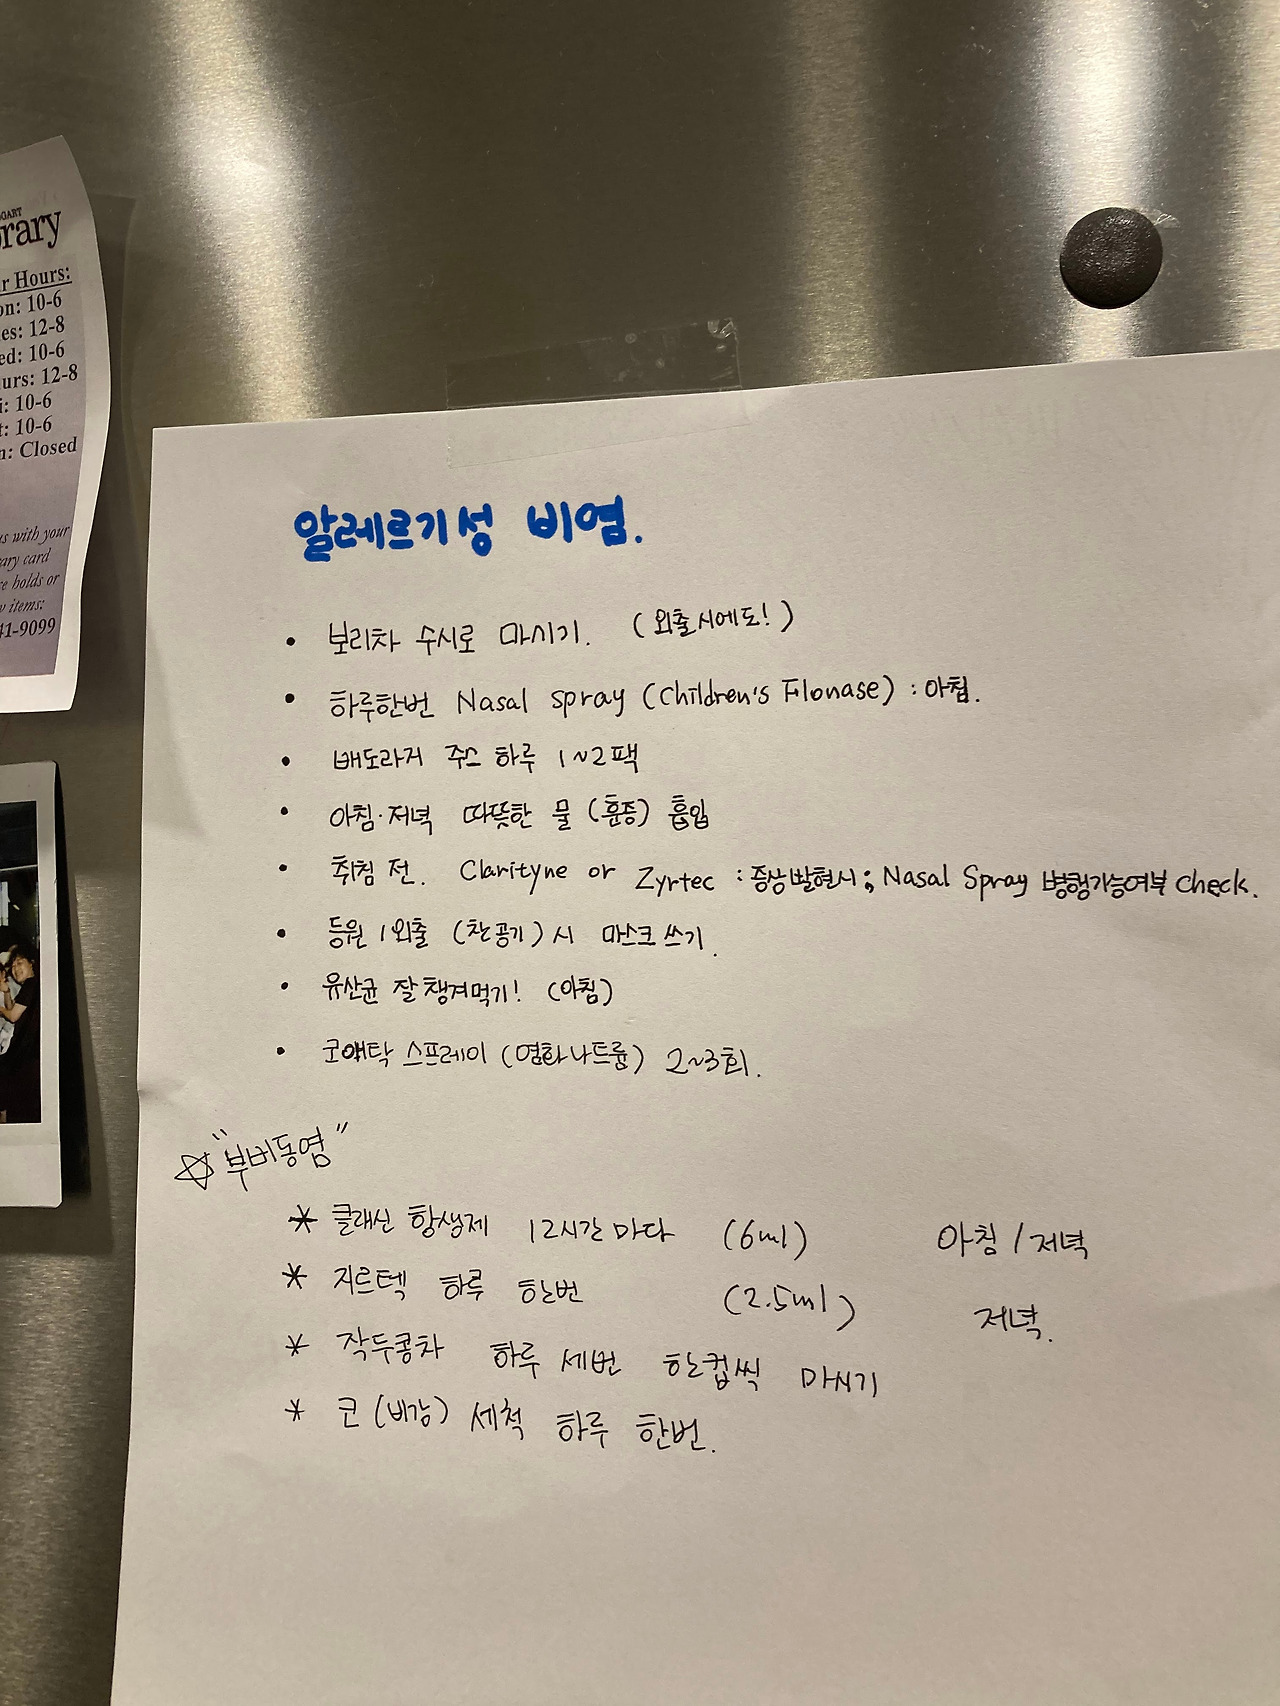 rary
r Hours:
on: 10-6
es: 12-8
ed: 10-6
urs: 12-8
i: 10-6
t: 10-6
n: Closed
us with your
ary card
e holds or
items:
41-9099
알레르기성 비염.
• 보리차 수시로 마시기. (외출시에도!)
• 하루한번 Nasal spray (Children's Flonase) : 아침.
• 배도라지 주스 하루 1~2팩
• 아침·저녁 따뜻한 물 (훈증) 흡입
• 취침 전. Clarityne or Zyrtec : 증상발현시; Nasal Spray 병행가능여부 check.
• 등원/외출 (찬공기) 시 마스크 쓰기.
• 유산균 잘 챙겨먹기! (아침)
• 코앤탁 스프레이 (염화나트륨) 2~3회.
☆ "부비동염"
* 클래신 항생제 12시간 마다 (6ml) 아침/저녁
* 지르텍 하루 한번 (2.5ml) 저녁.
* 작두콩차 하루 세번 한컵씩 마시기
* 코(비강) 세척 하루 한번.